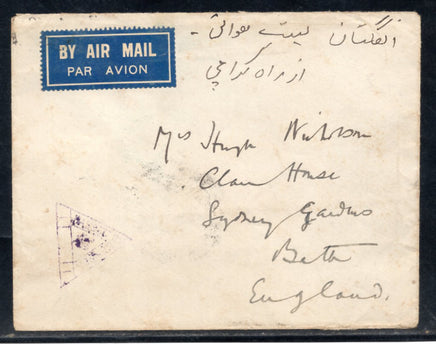 BY AIR MAIL
PAR AVION
انگلستان پست هوائی -
از راه کراچی
Mrs Hugh Nicholson
House
Sydney Gardens
Bath
England.